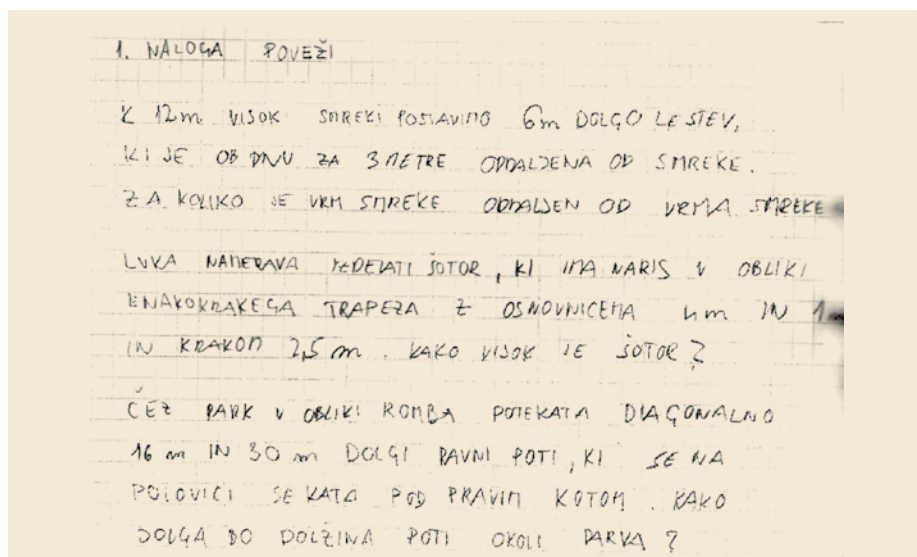 1. NALOGA POVEŽI
K 12m VISOK SMREKI POSTAVIMO 6m DOLGO LESTEV,
KI JE OB DNU ZA 3 METRE ODDALJENA OD SMREKE.
ZA KOLIKO JE VRH SMREKE ODDALJEN OD VRHA SMREKE
LUKA NAMERAVA IZDELATI ŠOTOR, KI IMA NARIS V OBLIKI
ENAKOKRAKEGA TRAPEZA Z OSNOVNICEMA 4m IN 1m
IN KRAKOM 2,5 m. KAKO VISOK JE ŠOTOR?
ČEZ PARK V OBLIKI ROMBA POTEKATA DIAGONALNO
16 m IN 30 m DOLGI RAVNI POTI, KI SE NA
POLOVICI SEKATA POD PRAVIM KOTOM. KAKO
DOLGA BO DOLŽINA POTI OKOLI PARKA?